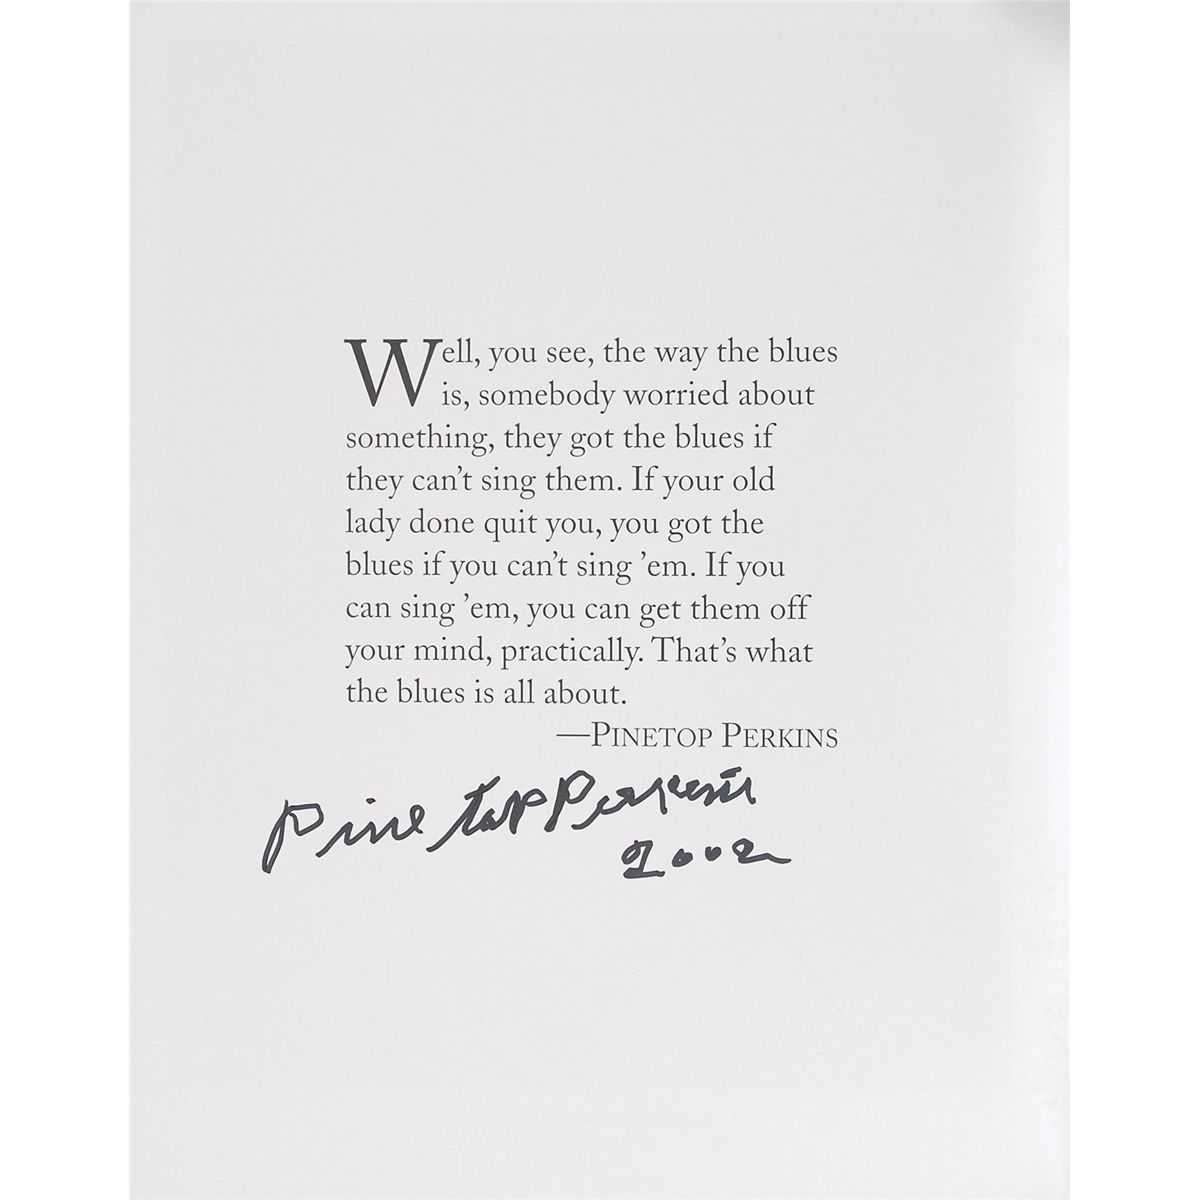 Well, you see, the way the blues
is, somebody worried about
something, they got the blues if
they can’t sing them. If your old
lady done quit you, you got the
blues if you can’t sing ’em. If you
can sing ’em, you can get them off
your mind, practically. That’s what
the blues is all about.
—PINETOP PERKINS
Pine top Perkins
2002